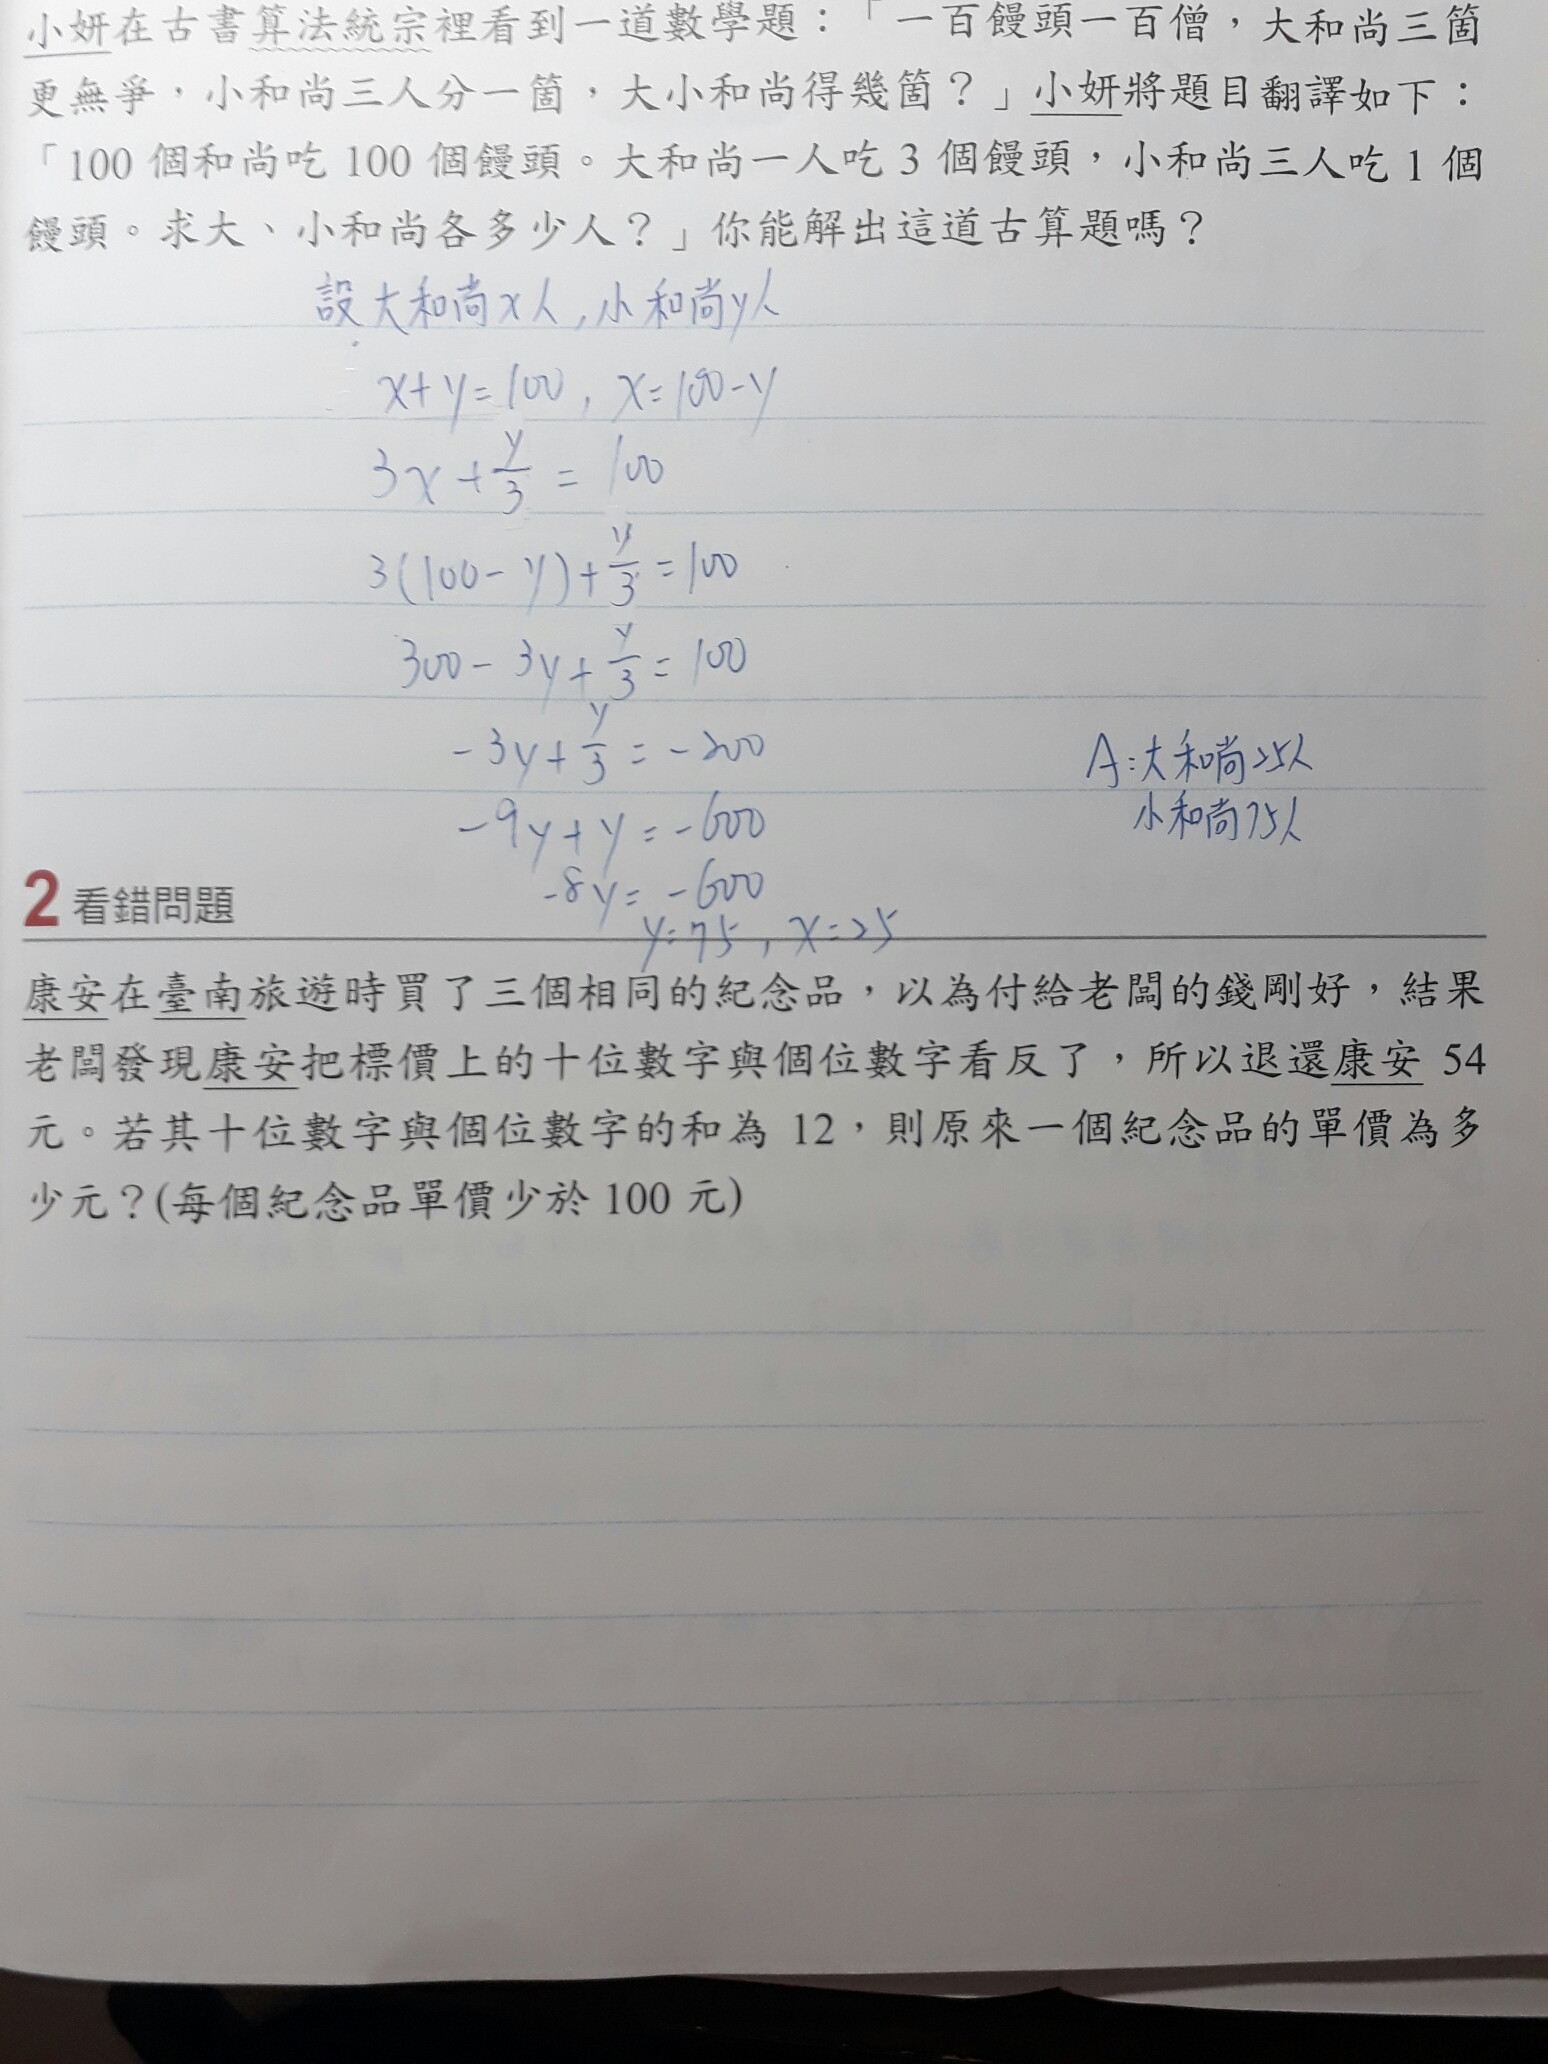 小妍在古書算法統宗裡看到一道數學題：「一百饅頭一百僧，大和尚三箇
更無爭，小和尚三人分一箇，大小和尚得幾箇？」小妍將題目翻譯如下：
「100 個和尚吃 100 個饅頭。大和尚一人吃 3 個饅頭，小和尚三人吃 1 個
饅頭。求大、小和尚各多少人？」你能解出這道古算題嗎？
設大和尚x人,小和尚y人
x+y=100, x=100-y
3x+y/3=100
3(100-y)+y/3=100
300-3y+y/3=100
-3y+y/3=-200
-9y+y=-600
-8y=-600
y=75, x=25
A:大和尚25人
小和尚75人
2 看錯問題
康安在臺南旅遊時買了三個相同的紀念品，以為付給老闆的錢剛好，結果
老闆發現康安把標價上的十位數字與個位數字看反了，所以退還康安 54
元。若其十位數字與個位數字的和為 12，則原來一個紀念品的單價為多
少元？(每個紀念品單價少於 100 元)